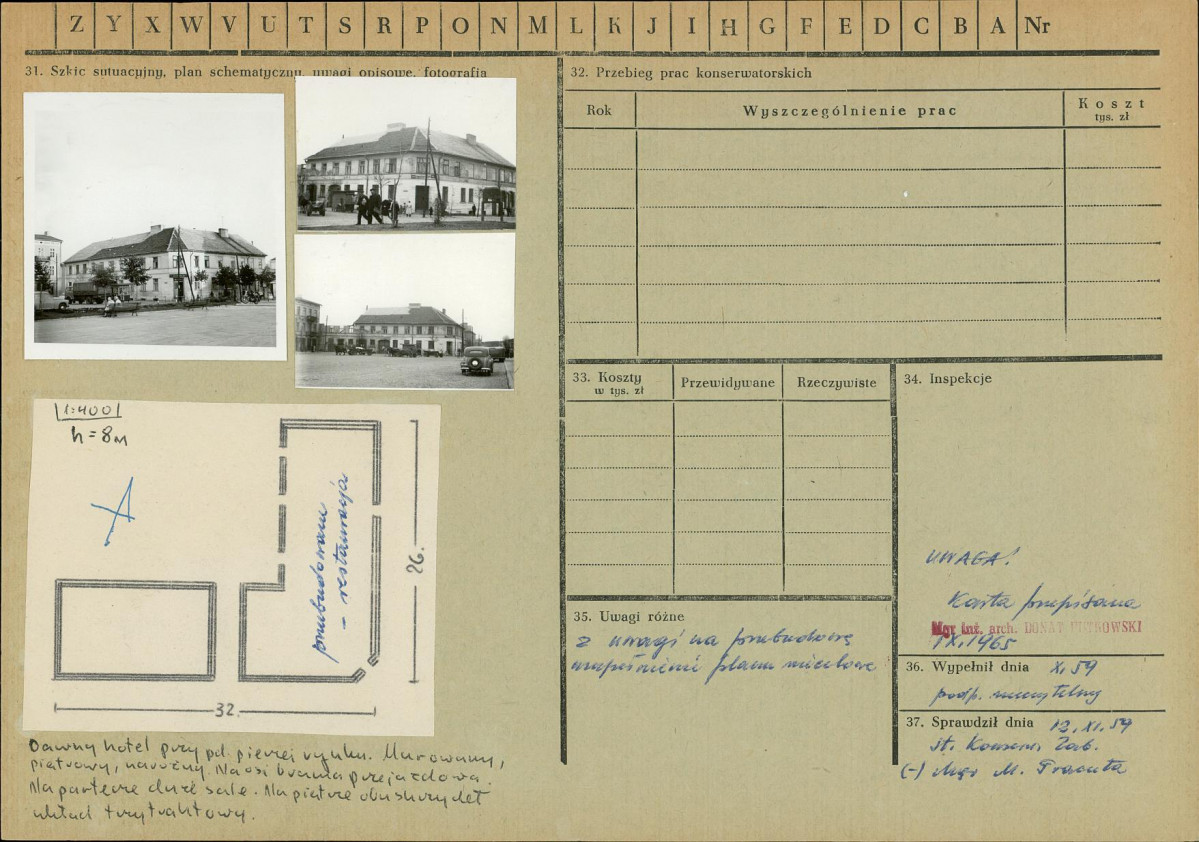 Z Y X W V U T S R P O N M L K J I H G F E D C B A Nr
31. Szkic sytuacyjny, plan schematyczny, uwagi opisowe, fotografia
1:400
h = 8m
przebudowano
- restauracja
26.
32.
Dawny hotel przy pd. pierzei rynku. Murowany,
piętrowy, narożny. Na osi brama przejazdowa.
Na parterze duże sale. Na piętrze obu skrzydeł
układ trzytraktowy.
32. Przebieg prac konserwatorskich
Rok
Wyszczególnienie prac
Koszt
tys. zł
33. Koszty
w tys. zł
Przewidywane
Rzeczywiste
34. Inspekcje
UWAGA!
Karta przepisana
Mgr inż. arch. DONAT PIETROWSKI
IX.1965
35. Uwagi różne
z uwagi na przebudowę
plan
36. Wypełnił dnia X.59
podp. nieczytelny
37. Sprawdził dnia 12.XI.59
st. Konserw. Zab.
(-) Mgr M.